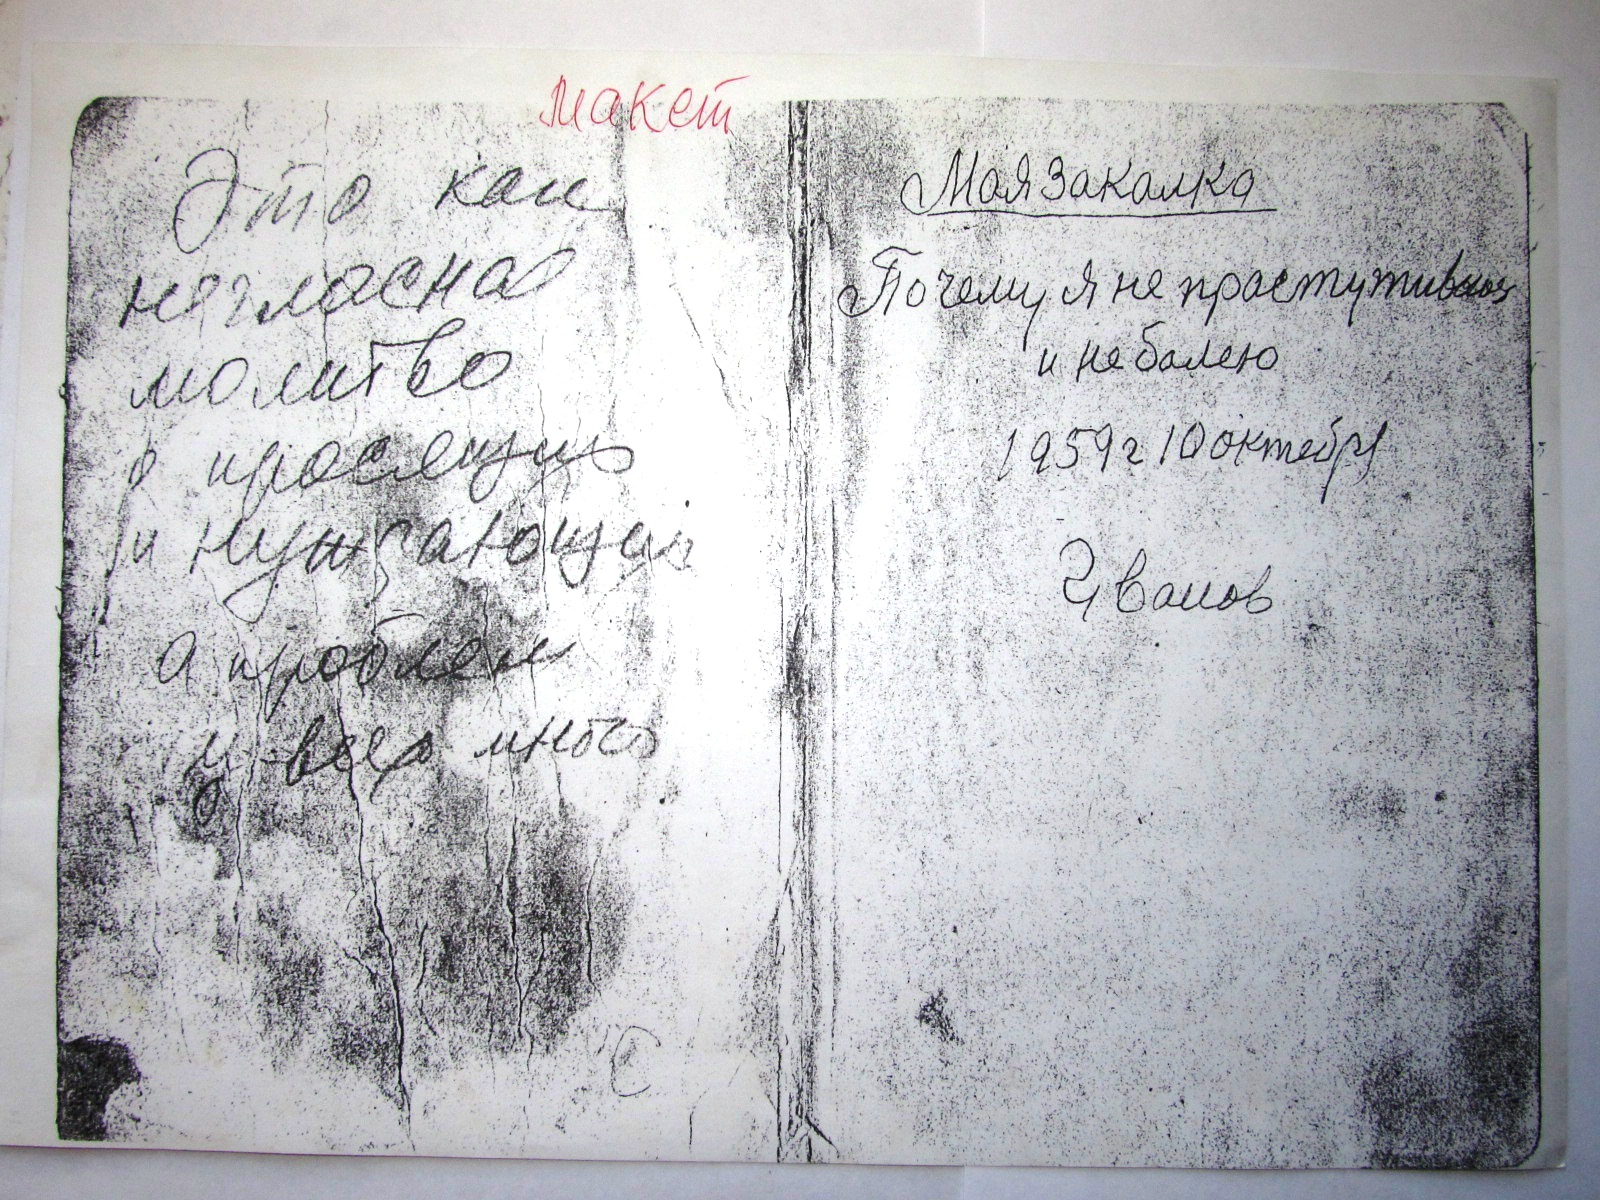 макет
Это как
негласная
молитва
о просящих
и нуждающихся
а проблем
у всех много
Моя закалка
Почему я не простуживаюсь
и не болею
1959г 10 октября
Иванов
С